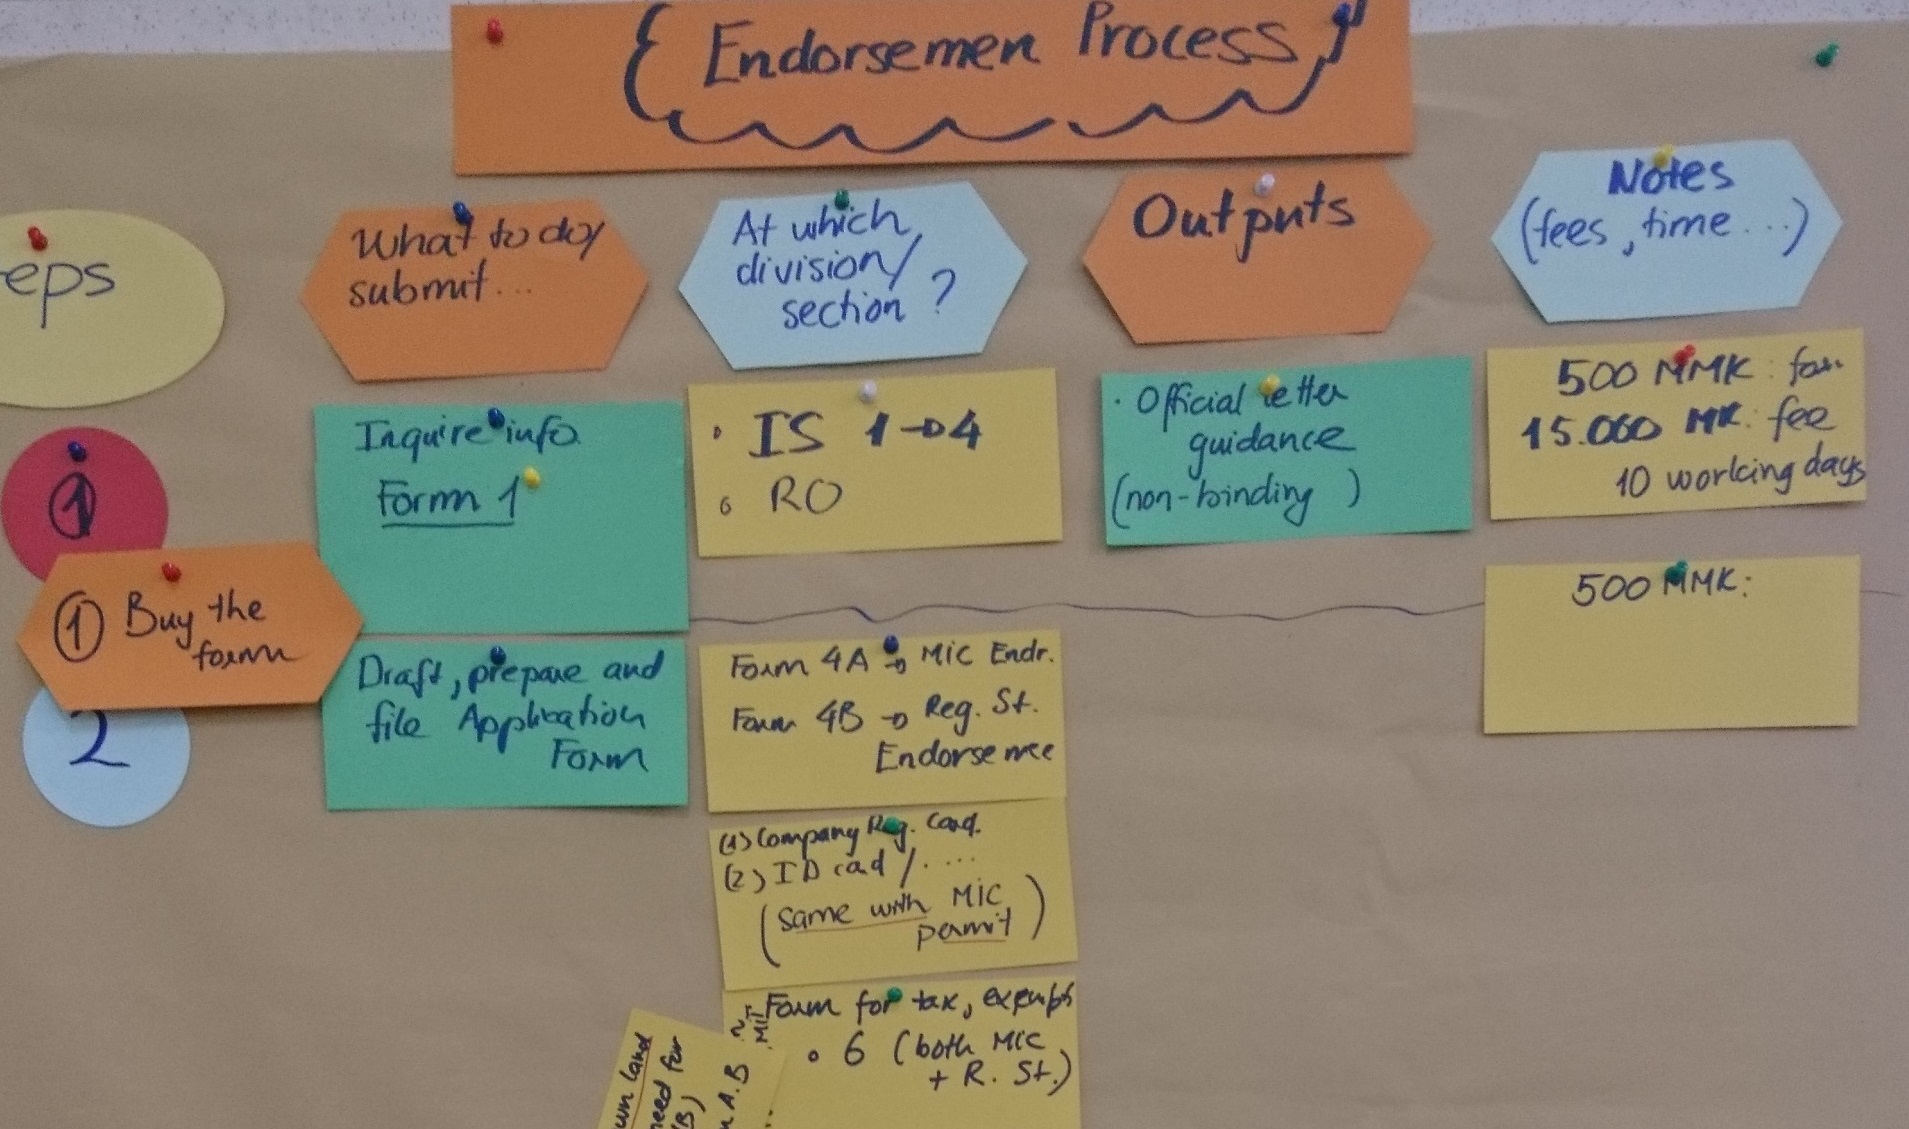 Endorsemen Process
eps
What to do/
submit...
At which
division/
section ?
Outputs
Notes
(fees, time...)
1
Inquire info
Form 1
• IS 1→4
• RO
• Official letter
guidance
(non-binding)
500 MMK: form
15.000 MK: fee
10 working days
① Buy the
form
2
Draft, prepare and
file Application
Form
Form 4A → MIC Endr.
Form 4B → Reg. St.
Endorseme
500 MMK:
(1) Company Reg. Card.
(2) ID cad /....
(same with MIC
permit)
Form for tax, exempts
• 6 (both MIC
+ R. St.)
wn land
need for
B)
A.B